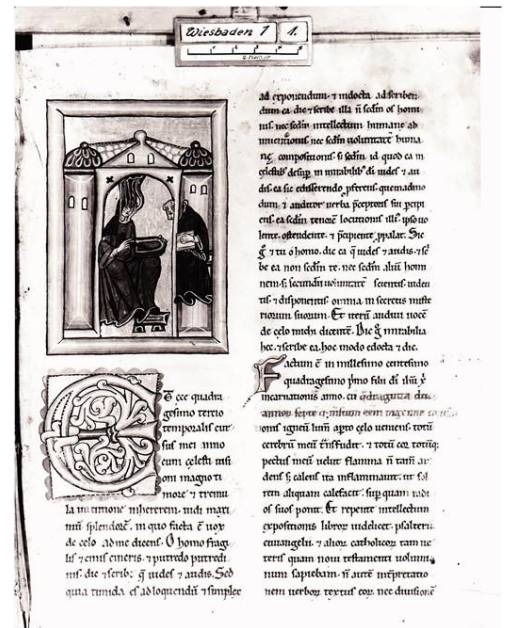 Wiesbaden 1 1.
Et ecce quadra
gesimo tertio
temporalis cur
sus mei anno
cum celesti uisi
oni magno ti
more ⁊ tremu
la intentione inhererem. uidi maxi
mū splendorē. in quo facta ē uox
de celo ad me dicens. O homo fragi
lis ⁊ cinis cineris. ⁊ putredo putredi
nis. dic ⁊ scribe q̄ uides ⁊ audis. Sed
quia timida es ad loquendū ⁊ simplex
ad exponendum. ⁊ indocta ad scriben
dum ea. dic ⁊ scribe illa n̄ scdm os homi
nis. nec scdm intellectum humane ad
inuentionis. nec scdm uoluntatē huma
nę compositionis. s; scdm id quod ea in
celestib; desup in mirabilib; dī uides ⁊ au
dis. ea sic edisserendo pferens. quemadmo
dum ⁊ auditor uerba pceptoris sui pcipi
ens. ea scdm tenorē locutionis illi. ipso uo
lente. ostendente. ⁊ pcipiente ppalat. Sic
g̊ ⁊ tu o homo. dic ea q̄ uides ⁊ audis. ⁊ sc̄
be ea non scdm te. nec scdm aliū homi
nem. s; secundū uoluntatē scientis. uiden
tis. ⁊ disponentis omnia in secretis miste
riorum suorum. Et iterū audiui uocē
de celo michi dicentē. Dic g̊ mirabilia
hec. ⁊ scribe ea hoc modo edocta ⁊ dic.
Factum ē in millesimo centesimo
quadragesimo pmo filii dī ihū x̄
incarnationis anno. cū quadraginta duo
annor̄ septē q; msium eēm
igneū lum̄ apto celo ueniens. totū
cerebrū meū tnsfudit. ⁊ totū cor. totūq;
pectus meū uelut flamma n̄ tam̄ ar
dens s; calens ita inflammauit. ut sol
rem aliquam calefacit. sup quam radi
os suos ponit. Et repente intellectum
expositionis libror̄ uidelicet psalterii.
euuangelii. ⁊ alior̄ catholicor̄ tam ue
teris quam noui testamenti uolumi
num sapiebam. n̄ autē interpretatio
nem uerbor̄ textus eor̄. nec diuisionē